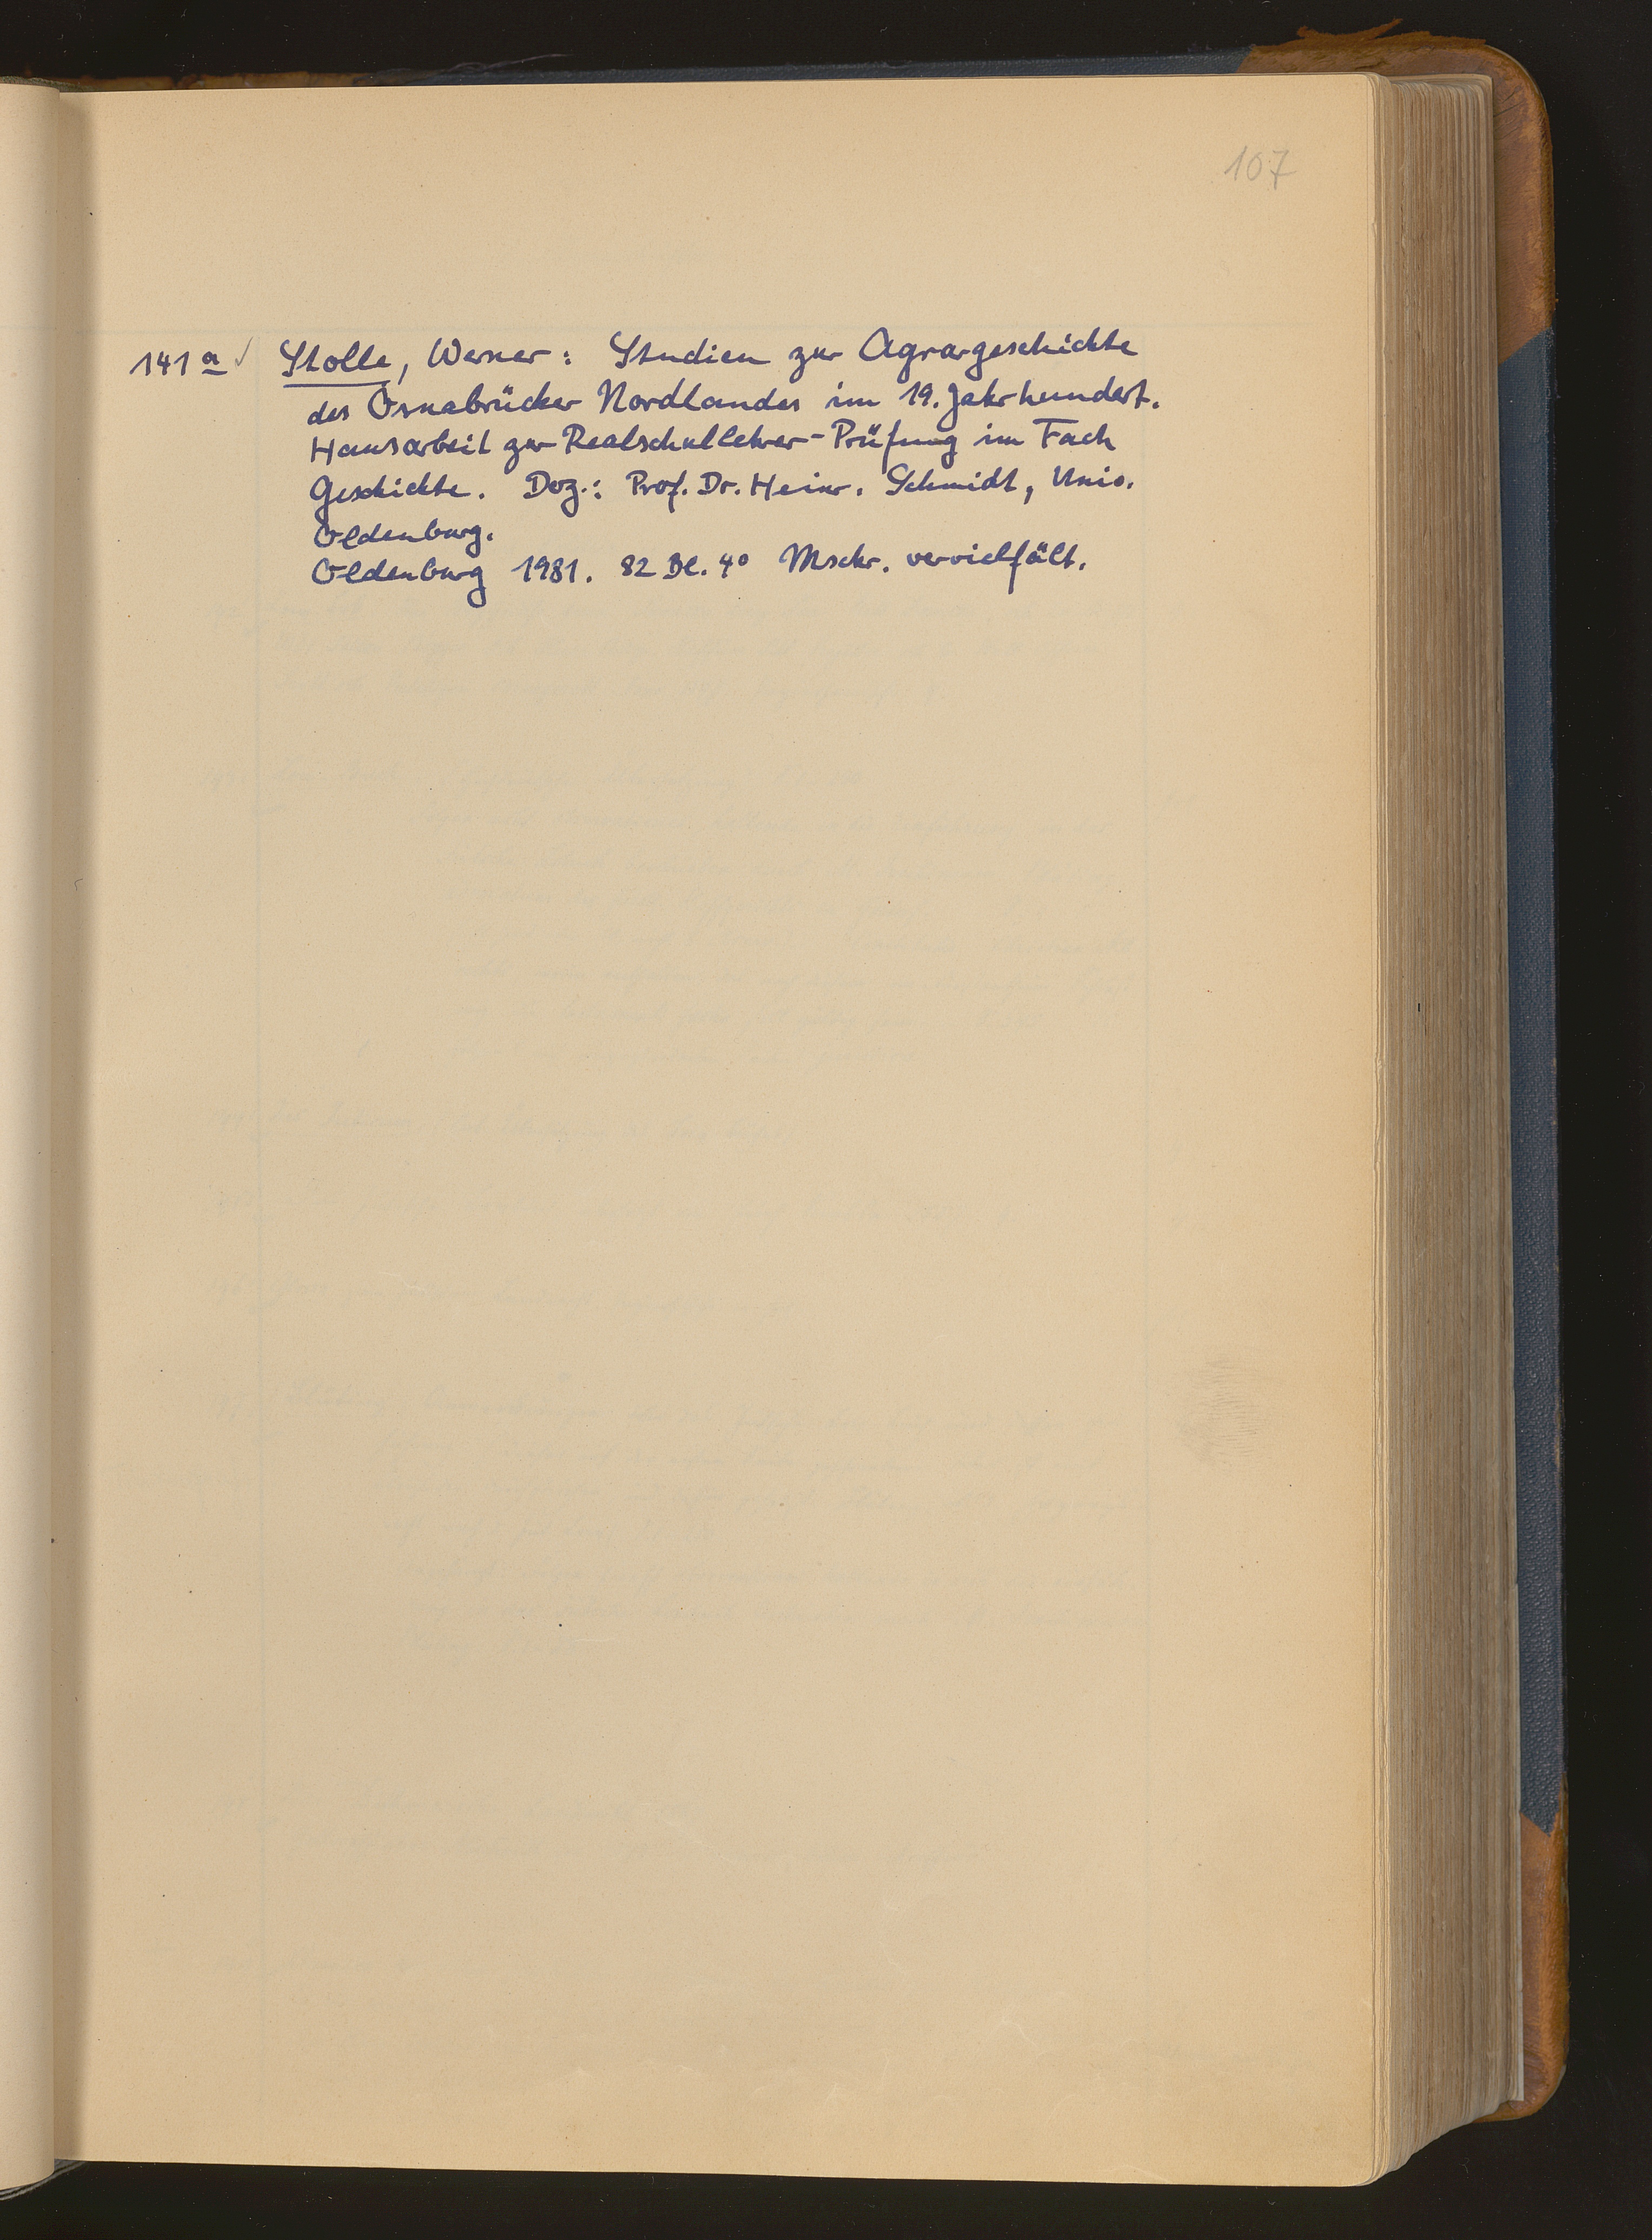 107
141 a ✓ Stolle, Werner: Studien zur Agrargeschichte
des Osnabrücker Nordlandes im 19. Jahrhundert.
Hausarbeit zur Realschullehrer-Prüfung im Fach
Geschichte. Doz.: Prof. Dr. Heinr. Schmidt, Univ.
Oldenburg.
Oldenburg 1981. 82 Bl. 4° Mschr. vervielfält.